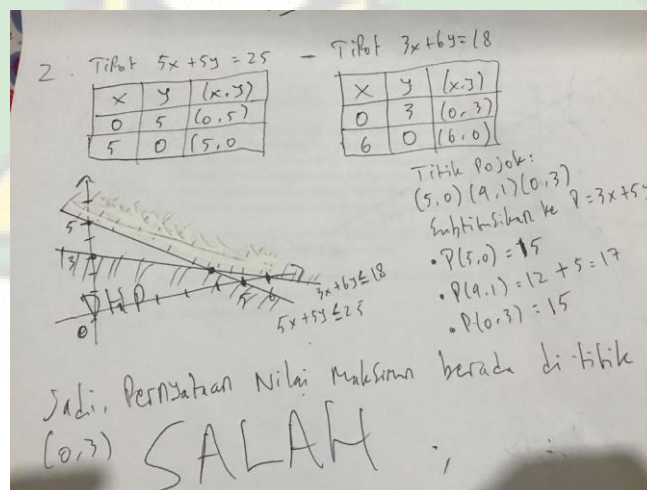 2. Tipot 5x + 5y = 25 - Tipot 3x + 6y = 18
x y (x,y)
0 5 (0,5)
5 0 (5,0
x y (x,y)
0 3 (0,3)
6 0 (6,0)
Titik Pojok:
(5,0) (4,1) (0,3)
Subtitusikan ke P = 3x + 5y
• P(5,0) = 15
• P(4,1) = 12 + 5 = 17
• P(0,3) = 15
5
3
DHP
0
4 5 6
3x + 6y ≤ 18
5x + 5y ≤ 25
Jadi, Pernyataan Nilai Maksimun berada di titik
(0,3) SALAH ;